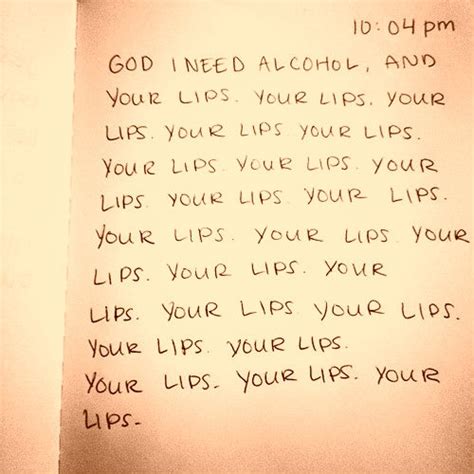 10:04 pm
GOD I NEED ALCOHOL, AND
YOUR LIPS. YOUR LIPS. YOUR
LIPS. YOUR LIPS YOUR LIPS.
YOUR LIPS. YOUR LIPS. YOUR
LIPS. YOUR LIPS. YOUR LIPS.
YOUR LIPS. YOUR LIPS. YOUR
LIPS. YOUR LIPS. YOUR
LIPS. YOUR LIPS. YOUR LIPS.
YOUR LIPS. YOUR LIPS.
YOUR LIPS. YOUR LIPS. YOUR
LIPS.